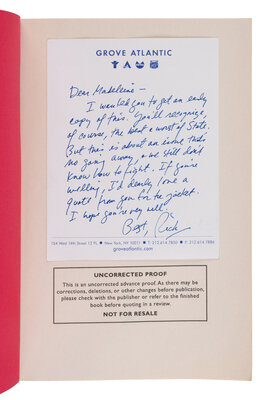 GROVE ATLANTIC
Dear Madeleine –
I wanted you to get an early
copy of this. You'll recognize,
of course, the best & worst of State.
But this is about an issue that's
no going away, & we still don't
know how to fight. If you're
willing, I'd dearly love a
quote from you for the jacket.
I hope you're very well.
Best, Rich
154 West 14th Street 12 FL • New York, NY 10011 • T: 212.614.7850 • F: 212.614.7886
groveatlantic.com
UNCORRECTED PROOF
This is an uncorrected advance proof. As there may be
corrections, deletions, or other changes before publication,
please check with the publisher or refer to the finished
book before quoting in a review.
NOT FOR RESALE